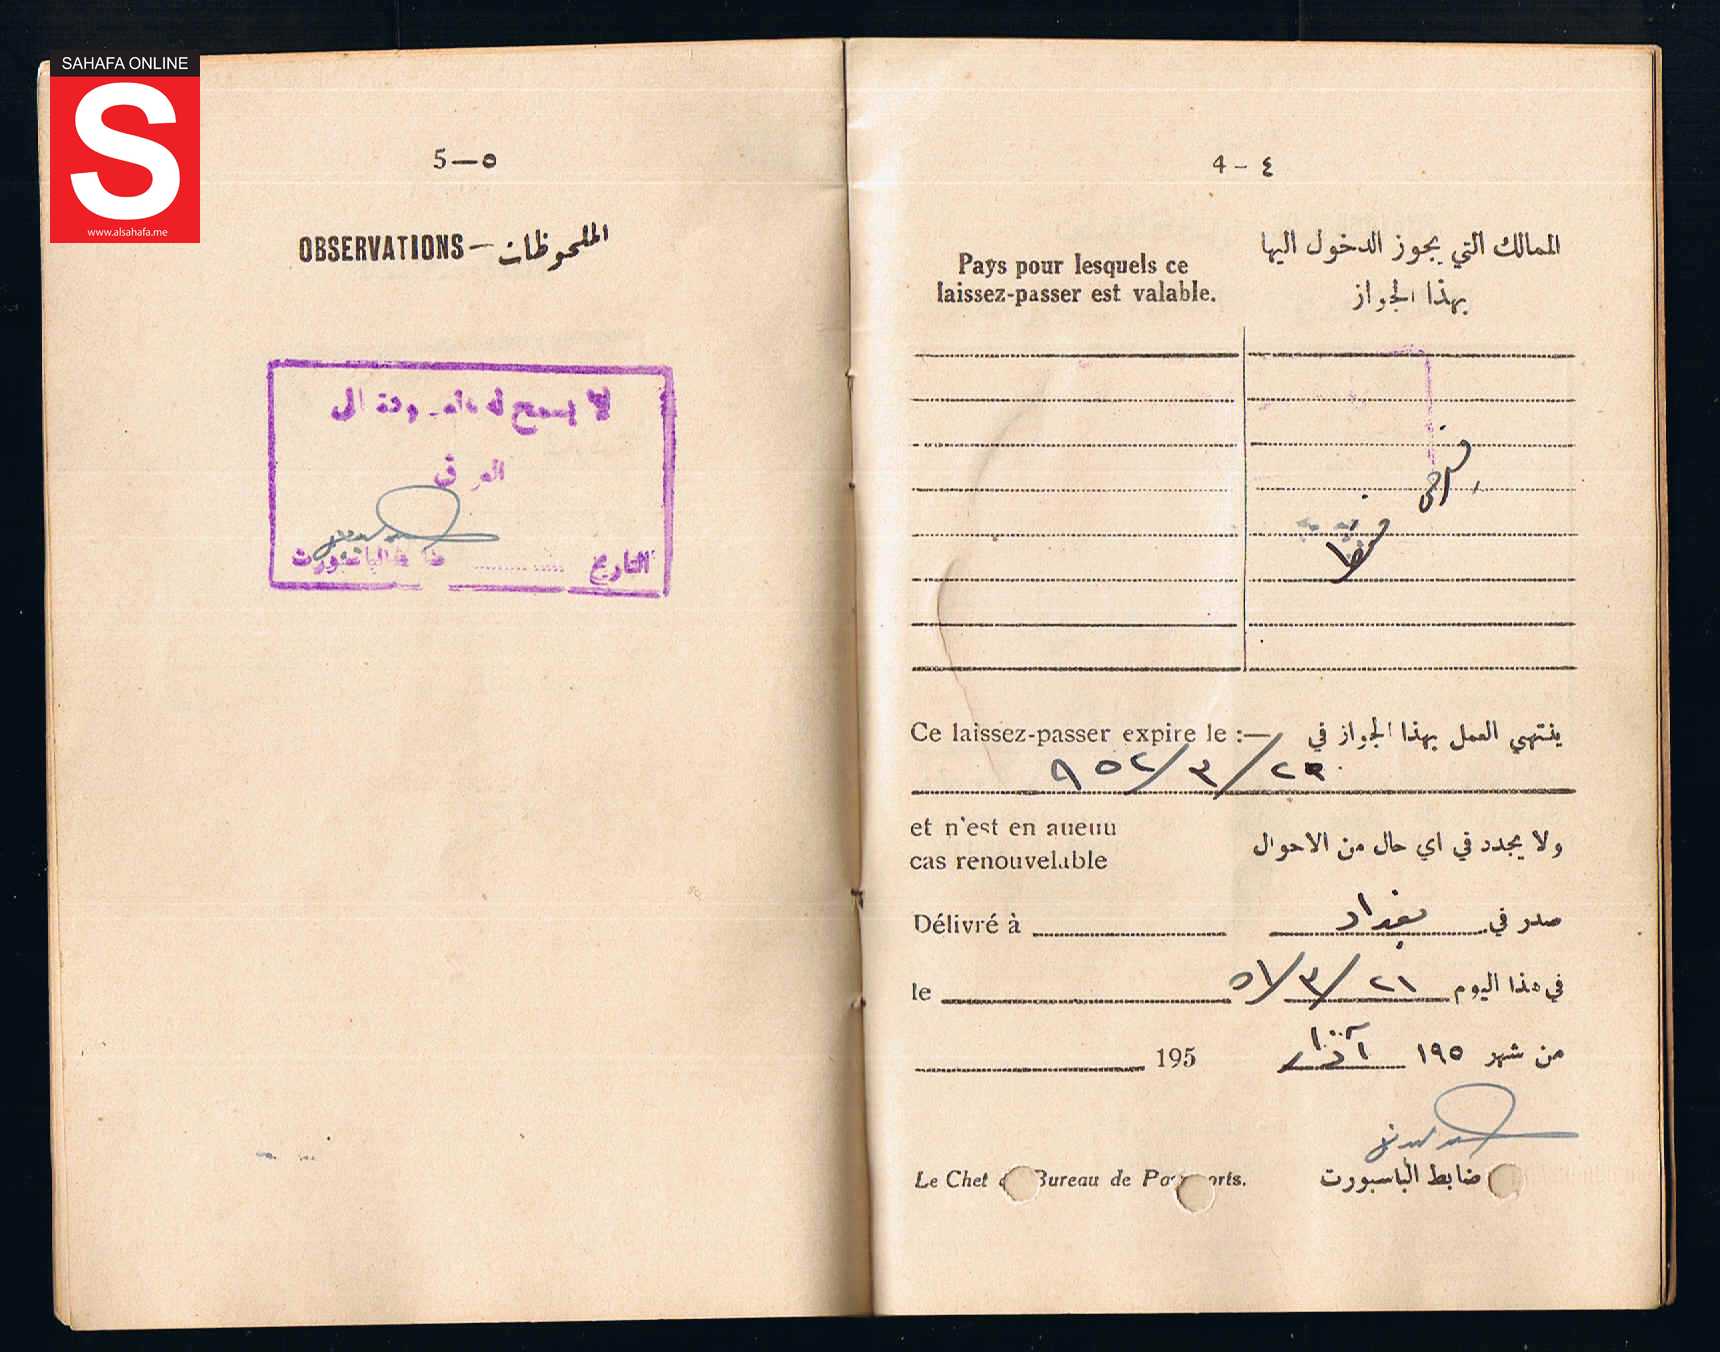 SAHAFA ONLINE
S
www.alsahafa.me
4 - ٤
Pays pour lesquels ce
laissez-passer est valable.
الممالك التي يجوز الدخول اليها
بهذا الجواز
فقط
Ce laissez-passer expire le :—
ينتهي العمل بهذا الجواز في
٩٥٢/٣/٢٠
et n'est en aucun
cas renouvelable
ولا يجدد في اي حال من الاحوال
Délivré à
صدر في بغداد
le
في هذا اليوم ٢١/٣/٥١
195
من شهر آذار ١٩٥
Le Chef Bureau de Passeports.
ضابط الباسبورت
5—٥
OBSERVATIONS — الملحوظات
لا يسمح له بالعودة الى
العراق
التاريخ ضابط الباسبورت